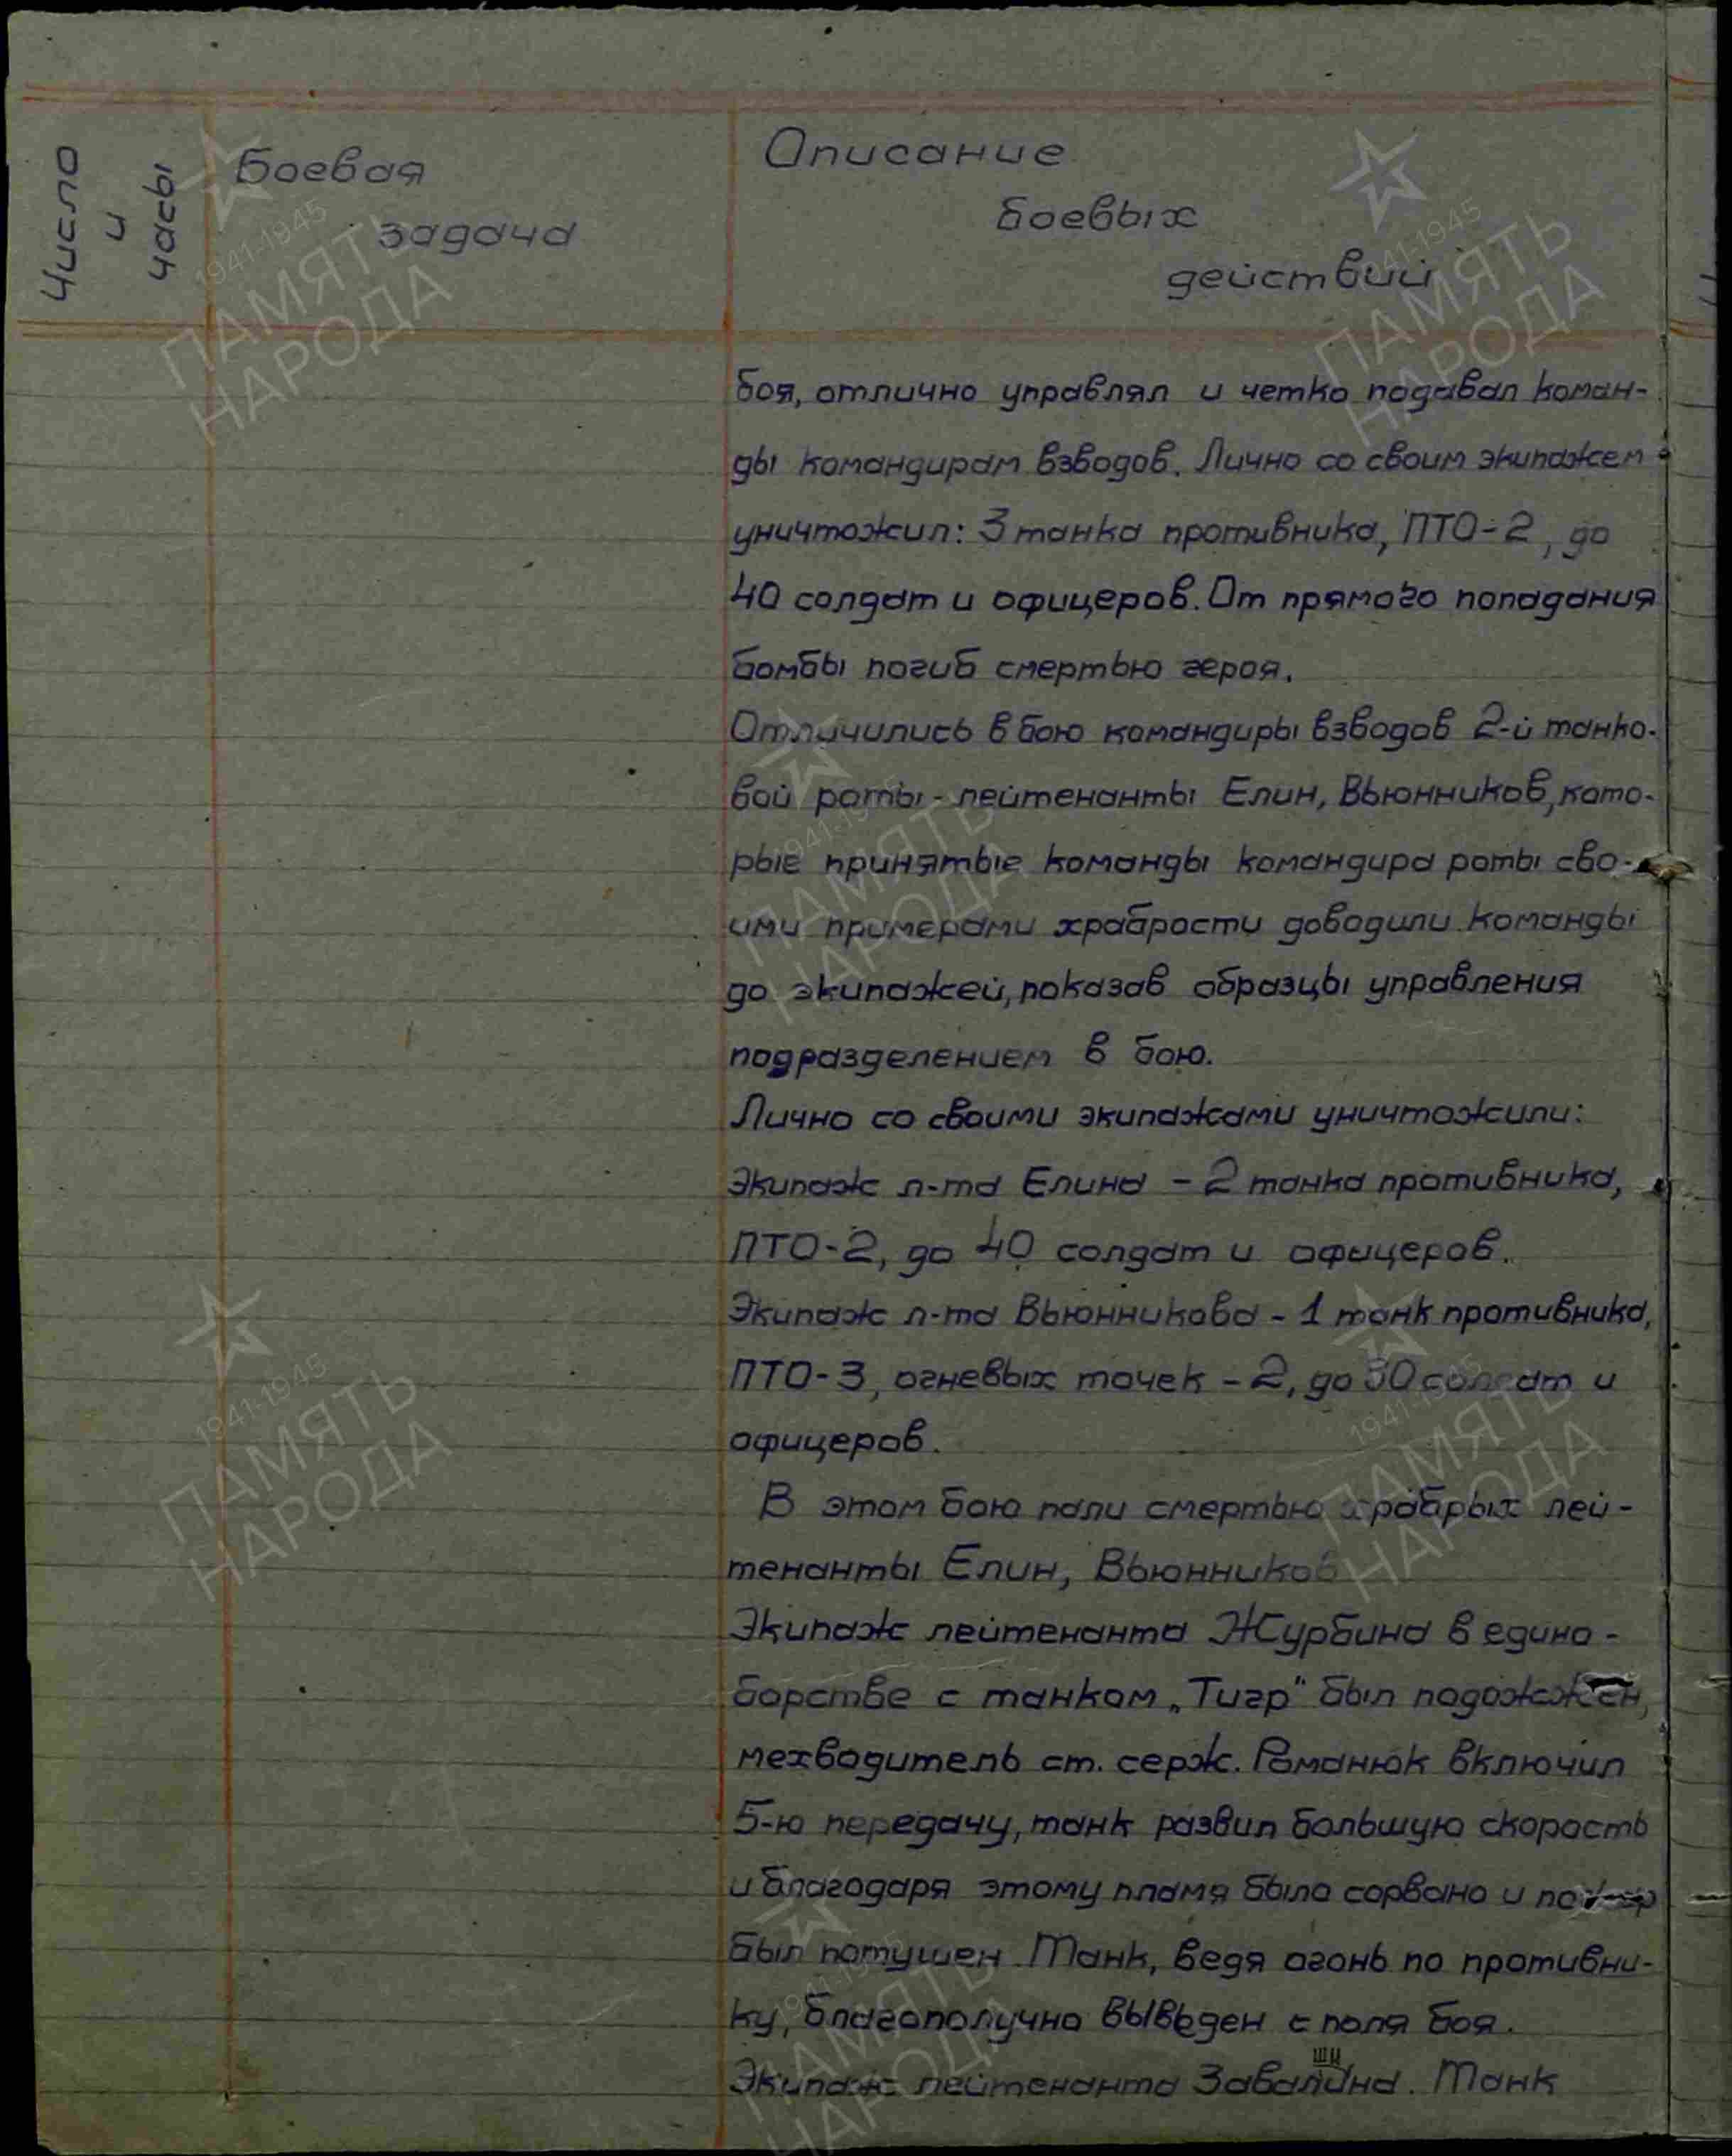 Число
и
часы
Боевая
задача
Описание
боевых
действий
боя, отлично управлял и четко подавал коман-
ды командирам взводов. Лично со своим экипажем
уничтожил: 3 танка противника, ПТО-2, до
40 солдат и офицеров. От прямого попадания
бомбы погиб смертью героя.
Отличились в бою командиры взводов 2-й танко-
вой роты - лейтенанты Елин, Вьюнников, кото-
рые принятые команды командира роты сво-
ими примерами храбрости доводили команды
до экипажей, показав образцы управления
подразделением в бою.
Лично со своими экипажами уничтожили:
Экипаж л-та Елина - 2 танка противника,
ПТО-2, до 40 солдат и офицеров.
Экипаж л-та Вьюнникова - 1 танк противника,
ПТО-3, огневых точек - 2, до солдат и
офицеров.
В этом бою пали смертью храбрых лей-
тенанты Елин, Вьюнников
Экипаж лейтенанта Журбина в едино-
борстве с танком „Тигр" был подожжен,
мехводитель ст. серж. Романюк включил
5-ю передачу, танк развил большую скорость
и благодаря этому пламя было сорвано и пожар
был потушен. Танк, ведя огонь по противни-
ку, благополучно выведен с поля боя.
ши
Экипаж лейтенанта Завалина. Танк
1941-1945
ПАМЯТЬ
НАРОДА
1941-1945
ПАМЯТЬ
НАРОДА
1941-1945
ПАМЯТЬ
НАРОДА
1941-1945
ПАМЯТЬ
НАРОДА
1941-1945
ПАМЯТЬ
НАРОДА
1941-1945
ПАМЯТЬ
НАРОДА